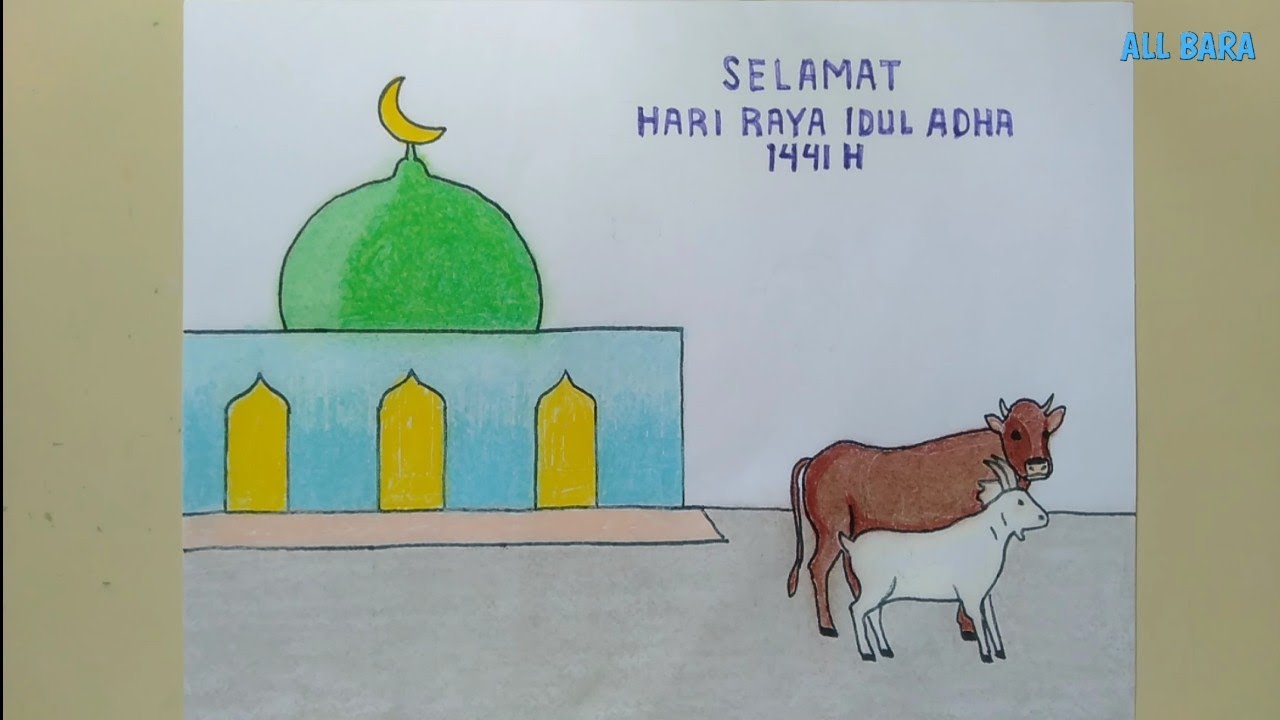 ALL BARA
SELAMAT
HARI RAYA IDUL ADHA
1441 H